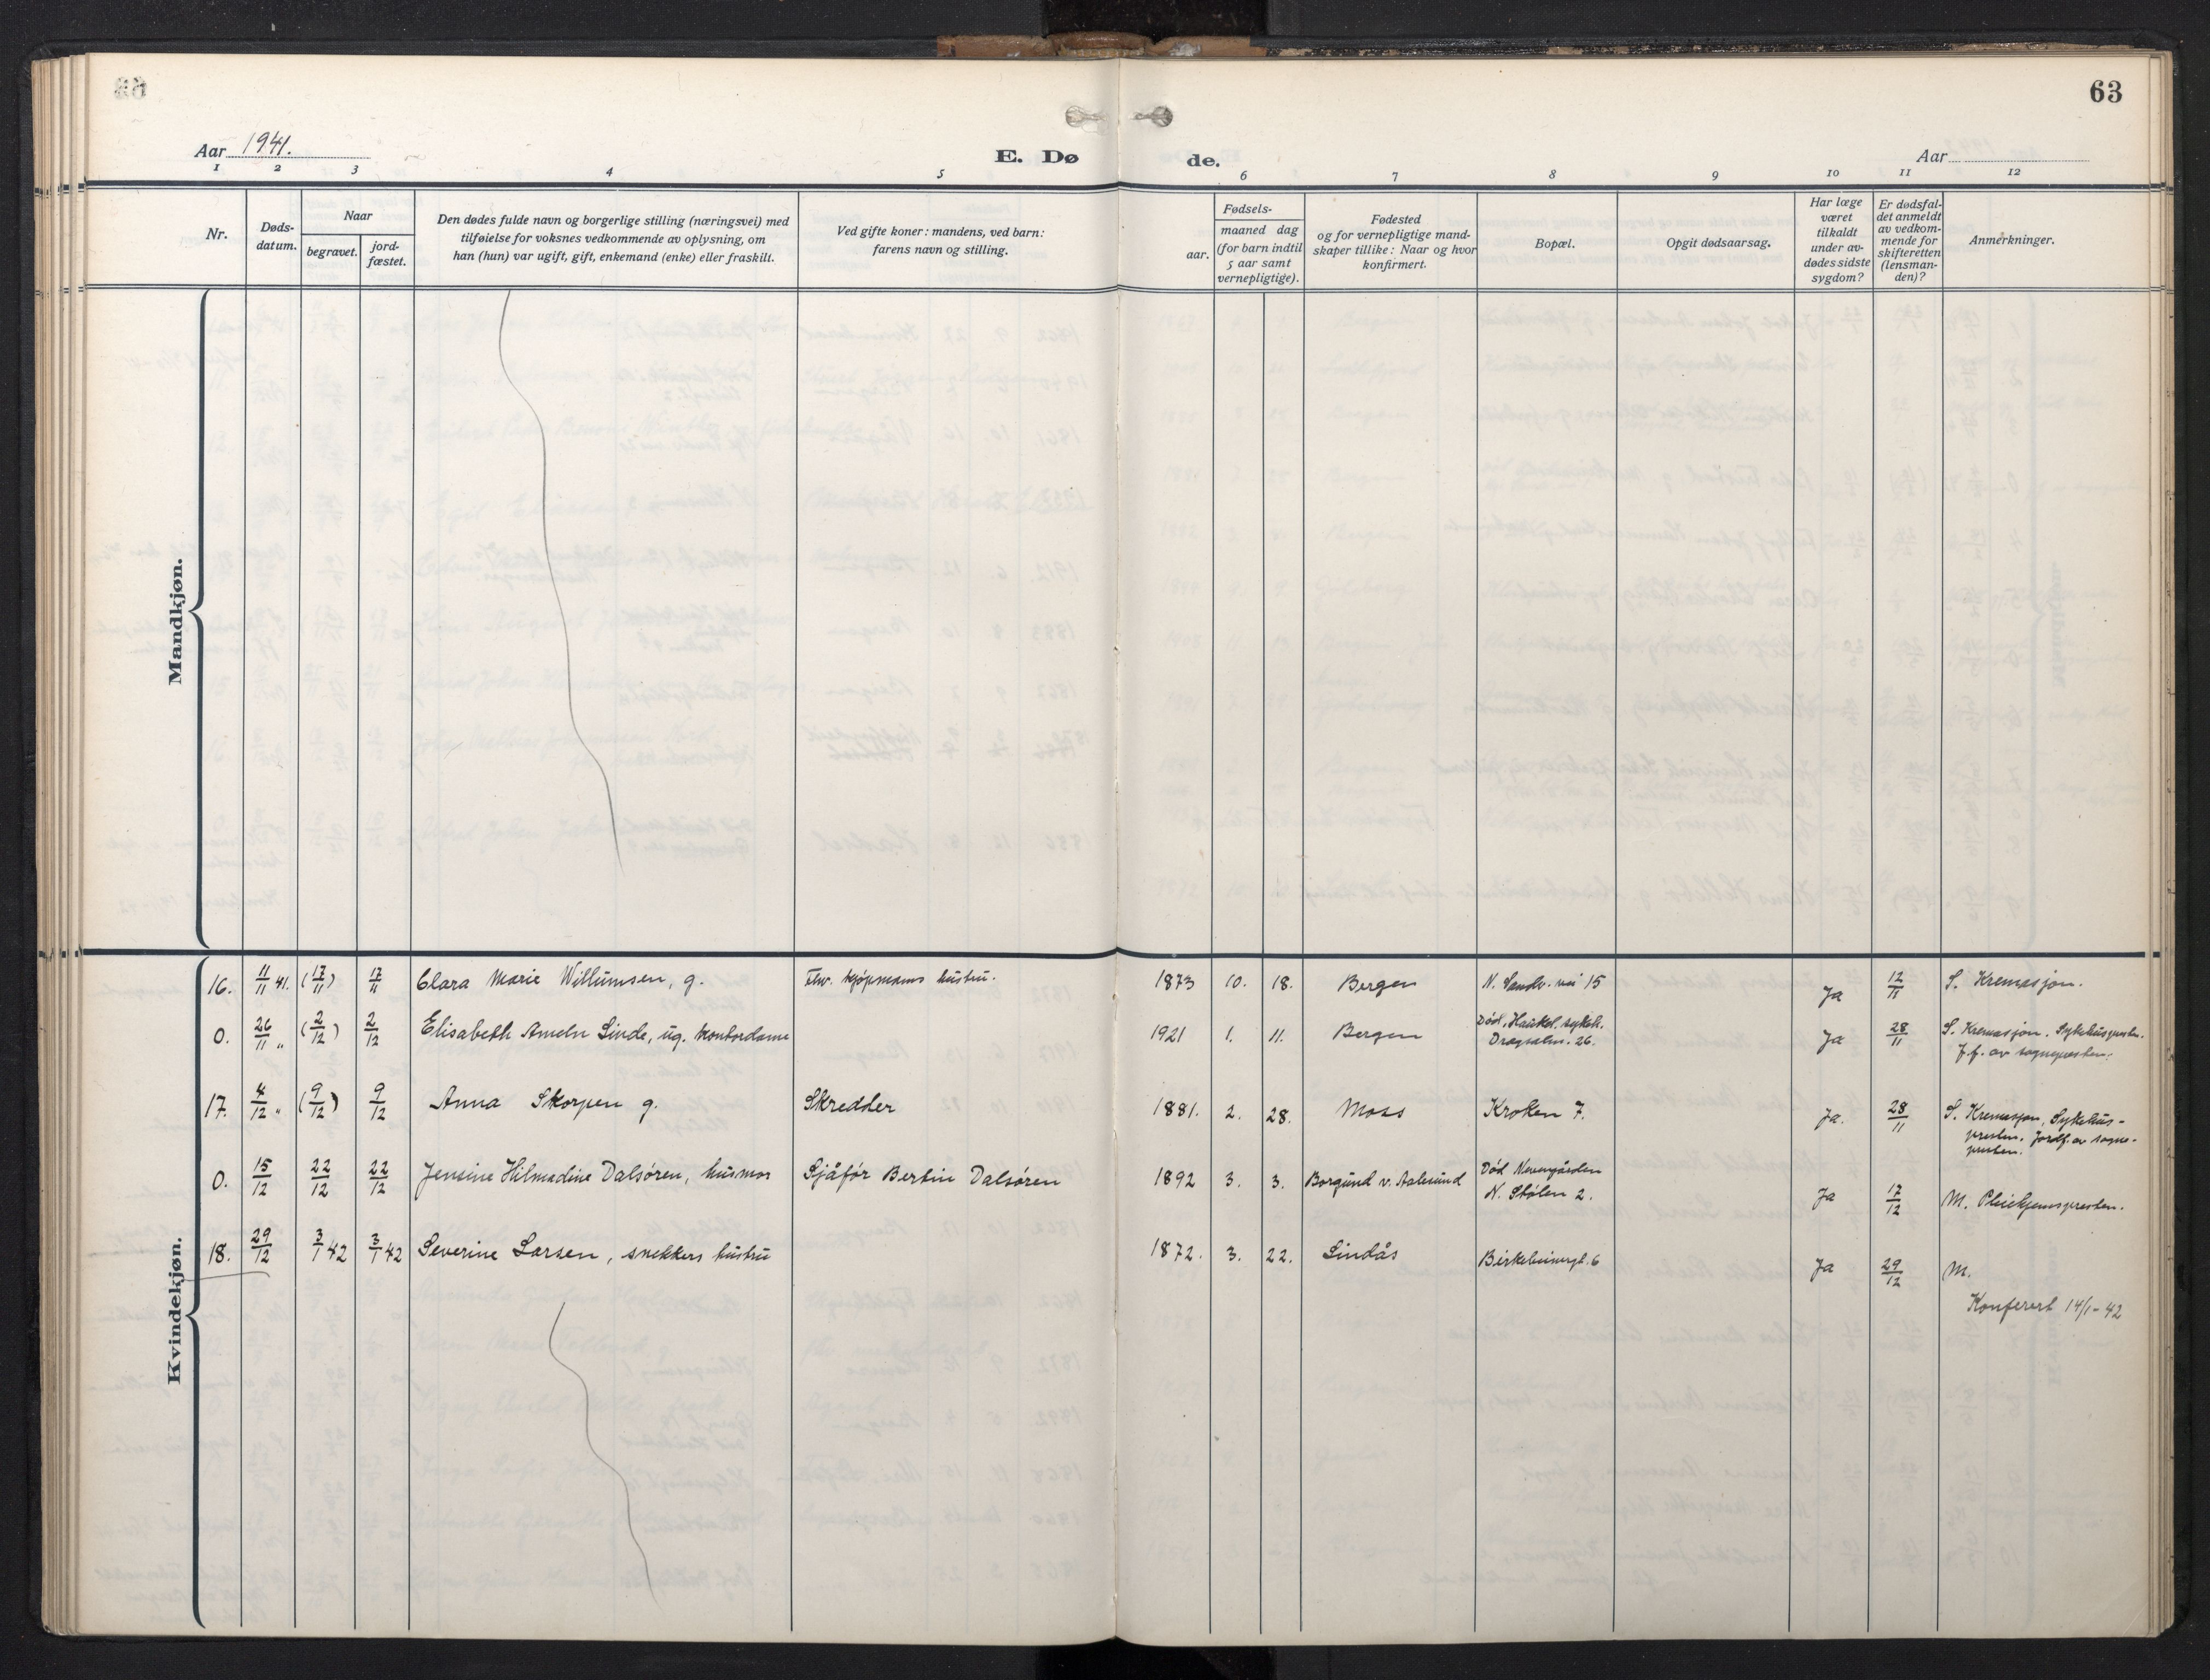 63
Aar 1941.
E. Dø
de.
Aar
1 2 3 4 5 6 7 8 9 10 11 12
Nr.
Døds-
datum.
Naar
begravet.
jord-
fæstet.
Den dødes fulde navn og borgerlige stilling (næringsvei) med
tilføielse for voksnes vedkommende av oplysning, om
han (hun) var ugift, gift, enkemand (enke) eller fraskilt.
Ved gifte koner: mandens, ved barn:
farens navn og stilling.
Fødsels-
aar.
maaned dag
(for barn indtil
5 aar samt
vernepligtige).
Fødested
og for vernepligtige mand-
skaper tillike: Naar og hvor
konfirmert.
Bopæl.
Opgit dødsaarsag.
Har læge
været
tilkaldt
under av-
dødes sidste
sygdom?
Er dødsfal-
det anmeldt
av vedkom-
mende for
skifteretten
(lensman-
den)?
Anmerkninger.
Mandkjøn.
Kvindekjøn.
16. 11/11 41. (17/11) 17/11 Clara Marie Willumsen, g. Fhv. kjøpmanns hustru. 1873 10. 18. Bergen N. Sandv. vei 15 Ja 12/11 S. Kremasjon.
0. 26/11 " (2/12) 2/12 Elisabeth Ameln Linde, ug. kontordame 1921 1. 11. Bergen Død, Haukel. sykeh.
Dragsalm. 26. Ja 28/11 S. Kremasjon. Sykehuspresten.
J.f. av sognepresten.
17. 4/12 " (9/12) 9/12 Anna Skorpen g. Skredder 1881. 2. 28. Moss Kroken 7. Ja. 28/11 S. Kremasjon, Sykehus-
presten. Jordf. av sogne-
presten.
0. 15/12 22/12 22/12 Jensine Hilmadine Dalsøren, husmor Sjåfør Bertin Dalsøren 1892 3. 3. Borgund v. Aalesund Død Nevengården
N. Stølen 2. Ja 17/12 M. Pleiehjemspresten.
18. 29/12 3/1 42 3/1 42 Severine Larsen, snekkers hustru 1872. 3. 22. Lindås Birkebeinergt. 6 Ja 29/12 M.
Konferert 14/1-42